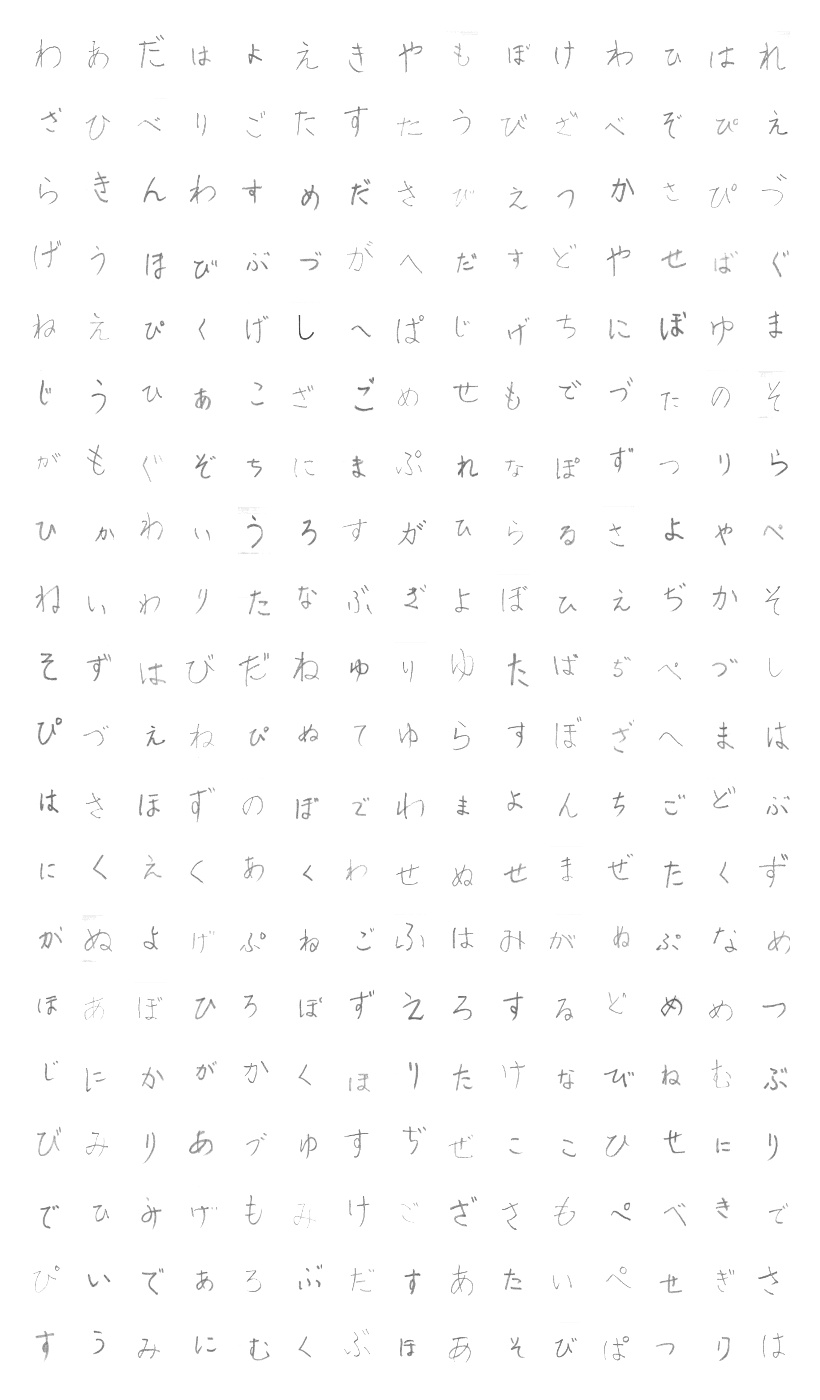 わあだはよえきやもぼけわひはれ
ざひべりごたすたうびざべぞぴえ
らきんわすめださびえつかさぴづ
げうほびぶづがへだすどやせばぐ
ねえぴくげしへぱじげちにぼゆま
じうひあこざごめせもでづたのそ
がもぐぞちにまぷれなぽずつりら
ひかわいうろすがひらるさよやぺ
ねいわりたなぶぎよぼひえぢかそ
そずはびだねゆりゆたばぢぺづし
ぴづえねぴぬてゆらすぼざへまは
はさほずのぼでわまよんちごどぶ
にくえくあくわせぬせまぜたくず
がぬよげぷねごふはみがぬぷなめ
ほあぼひろぽずえろするどめめつ
じにかがかくほりたけなびねむぶ
びみりあづゆすぢぜここひせにり
でひみげもみけござさもぺべきで
ぴいであろぶだすあたいぺせぎさ
すうみにむくぶほあそびぱつりは